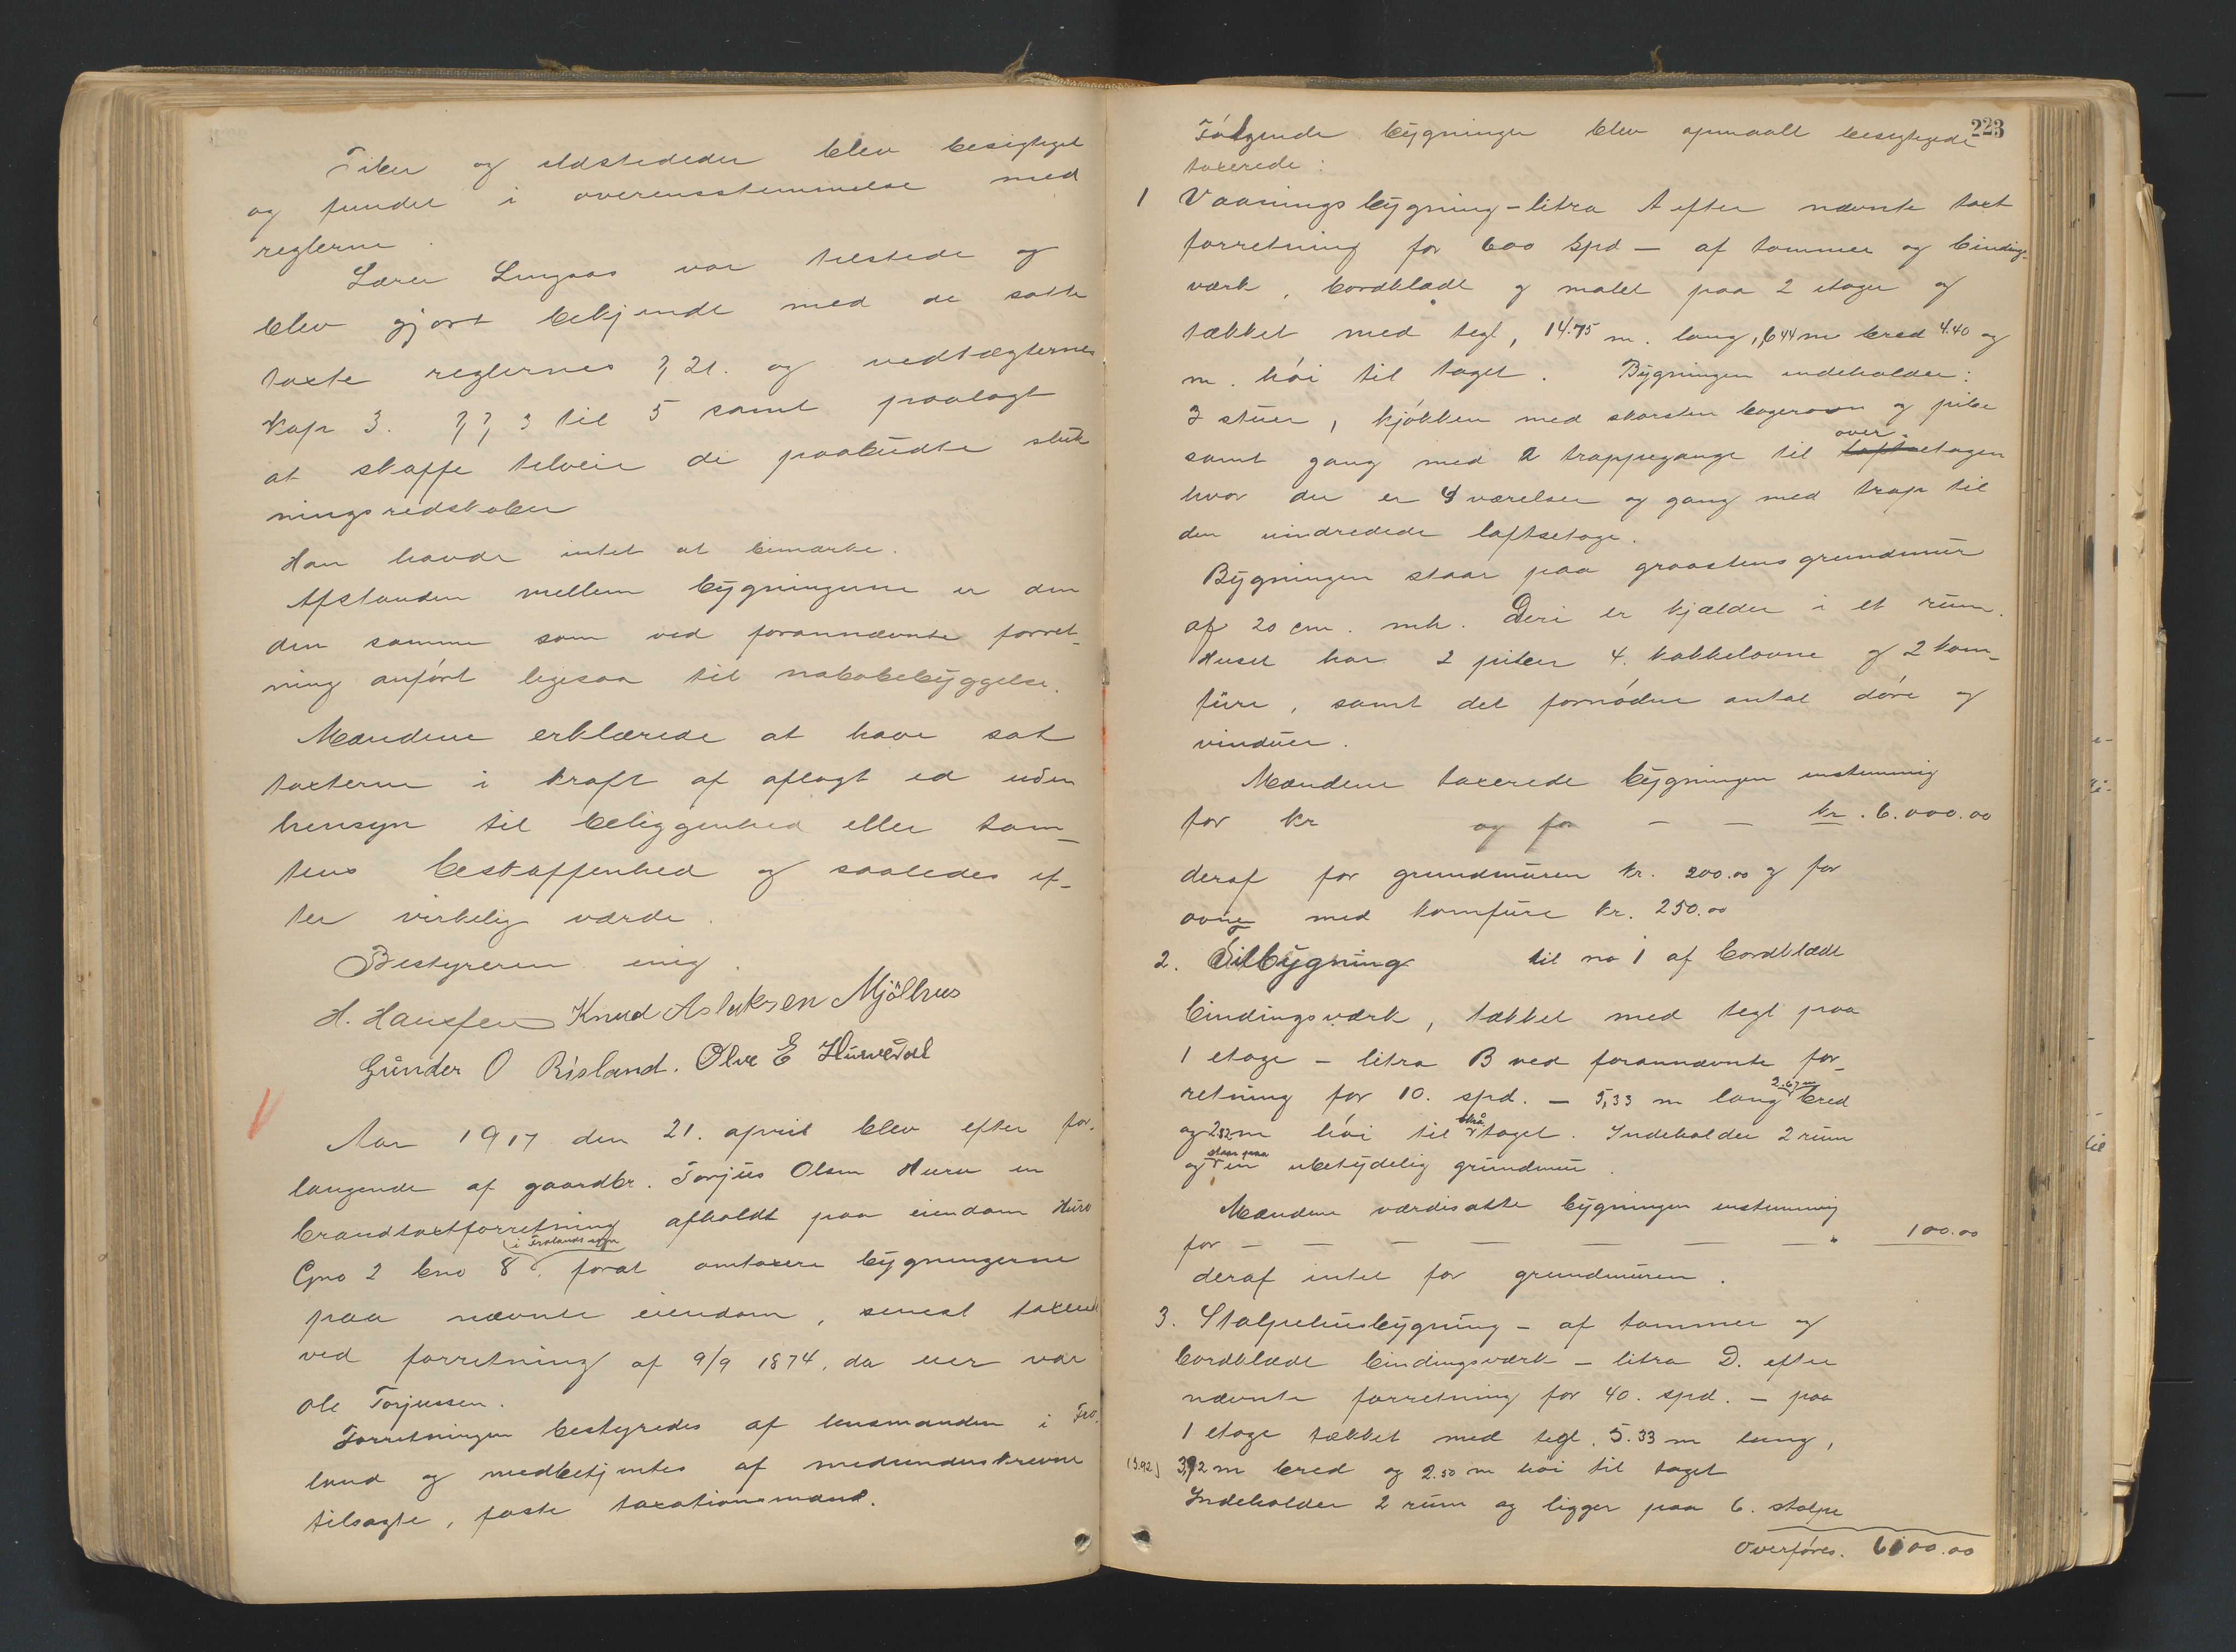 Piber og ildsteder blev besigtiget
og fundet i overensstemmelse med
reglerne.
Lærer Lingaas var tilstede og
blev gjort bekjendt med de satte
taxte reglernes § 21. og vedtægternes
Kap 3. §§ 3 til 5 samt paalagt
at skaffe tilveie de paabudte sluk
ningsredskaber
Han havde intet at bemærke.
Afstanden mellem bygningerne er den
den samme som ved forannævnte forret-
ning anført ligesaa til nabobebyggelse.
Mændene erklærede at have sat
taxterne i kraft af aflagt ed uden
hensyn til beliggenhed eller tom-
tens beskaffenhed og saaledes ef-
ter virkelig værde.
Bestyreren enig.
H. Hansen Knud Aslaksen Mjölhus
Gunder O Risland. Olve E Hurvedal
Aar 1917 den 21. april blev efter for-
langende af gaardbr. Torjus Olsen Huru en
brandtaxtforretning afholdt paa eiendom Huru
i Frolands sogn
Gno 2 bno 8. forat omtaxere bygningerne
paa nævnte eiendom, senest taxeret
ved forretning af 9/9 1874, da eier var
Ole Torjussen.
Forretningen bestyredes af lensmanden i Fro-
land og medbetjentes af medunderskrevne
tilsagte, faste taxationsmænd.
223
Følgende bygninger blev opmaalt besigtigede
taxerede:
1 Vaaningsbygning - litra A efter nævnte taxt
forretning for 600 Spd - af tømmer og bindings-
værk, bordklædt og malet paa 2 etager og
tækket med tegl, 14.75 m. lang, 6,44 m bred 4.40 og
m. høi til taget. Bygningen indeholder:
3 stuer, kjøkken med skorsten bagerovn og pibe
over
samt gang med 2 trappegange til loftsetagen
hvor der er 4 værelser og gang med trap til
den uindredede loftsetage.
Bygningen staar paa graastens grundmur
af 20 cm. mh. Deri er kjælder i et rum.
Huset har 2 piber 4. kakkelovne og 2 kom-
fure, samt det fornødne antal døre og
vinduer.
Mændene taxerede bygningen enstemmig
for kr og for - - kr. 6.000.00
deraf for grundmuren kr. 200.00 og for
ovne med komfure kr. 250.00
2. Tilbygning til no 1 af bordklædt
bindingsværk, tækket med tegl paa
1 etage - litra B ved forannævnte for-
2.67 m
retning for 10. spd. - 5,33 m lang bred
skrå
og 2.82 m høi til taget. Indeholder 2 rum
staar paa
og en ubetydelig grundmur.
Mændene værdisatte bygningen enstemmig
for - - - - - - 100.00
deraf intet for grundmuren.
3. Stolpehusbygning - af tømmer og
bordklædt bindingsværk - litra D. efter
nævnte forretning for 40. spd. - paa
1 etage tækket med tegl. 5.33 m lang,
(3.92) 3,92 m bred og 2.50 m høi til taget
Indeholder 2 rum og ligger paa 6. stolpe
Overføres. 6100.00